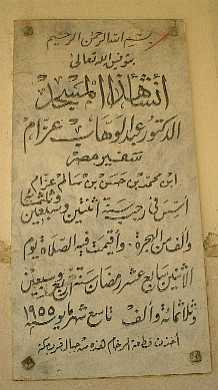 بسم الله الرحمن الرحيم
بتوفيق الله تعالى
أنشأ هذا المسجد
الدكتور عبد الوهاب عزام
سفير مصر
ابن محمد بن حسن بن سالم عزام
أسس في سنة اثنتين وسبعين وثلثمائة
وألف من الهجرة. وأقيمت فيه الصلاة يوم
الاثنين سابع عشر رمضان سنة أربع وسبعين
وثلاثمائة وألف تاسع شهر مايو سنة ١٩٥٥
أخذت قطعة الرخام هذه من جبال قرب مكة